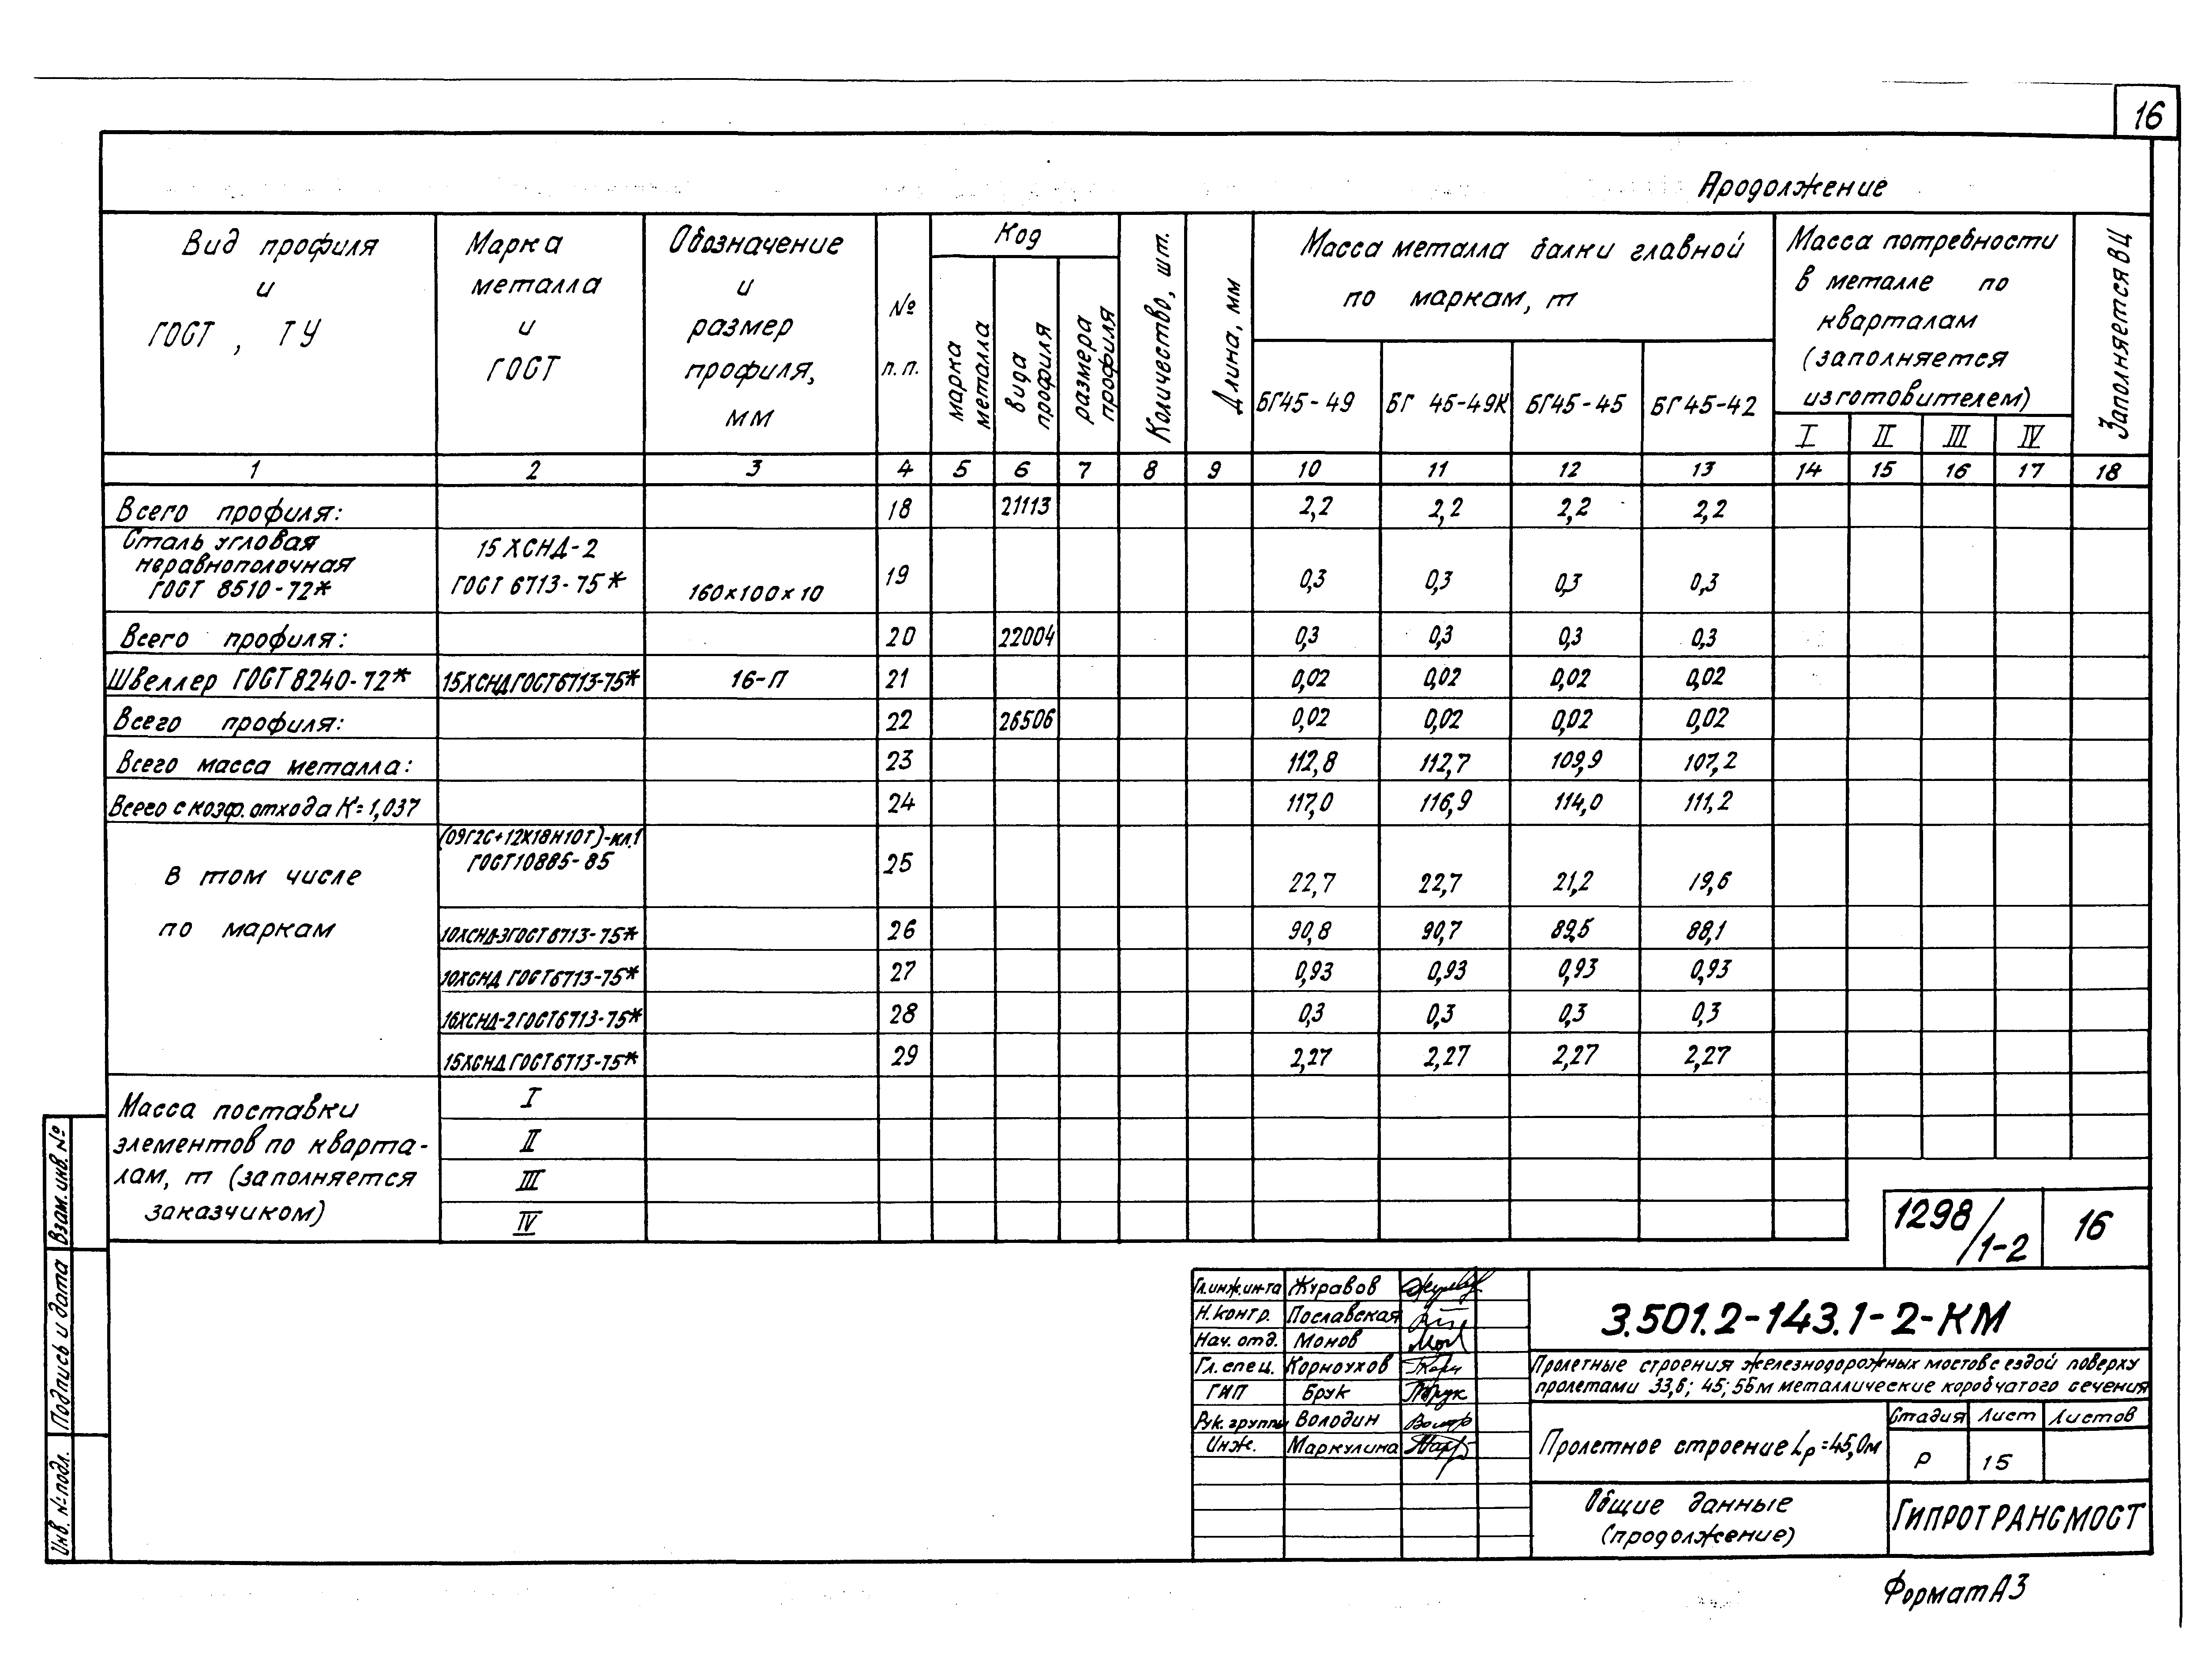 16
Продолжение
Вид профиля и ГОСТ, ТУ
Марка металла и ГОСТ
Обозначение и размер профиля, мм
№ п.п.
Код
марка металла
вида профиля
размера профиля
Количество, шт.
Длина, мм
Масса металла балки главной по маркам, т
БГ45-49 БГ 45-49К БГ45-45 БГ45-42
Масса потребности в металле по кварталам (заполняется изготовителем)
I II III IV
Заполняется ВЦ
1 2 3 4 5 6 7 8 9 10 11 12 13 14 15 16 17 18
Всего профиля: 18 21113 2,2 2,2 2,2 2,2
Сталь угловая неравнополочная ГОСТ 8510-72* 15ХСНД-2 ГОСТ 6713-75* 160×100×10 19 0,3 0,3 0,3 0,3
Всего профиля: 20 22004 0,3 0,3 0,3 0,3
Швеллер ГОСТ8240-72* 15ХСНД ГОСТ6713-75* 16-П 21 0,02 0,02 0,02 0,02
Всего профиля: 22 26506 0,02 0,02 0,02 0,02
Всего масса металла: 23 112,8 112,7 109,9 107,2
Всего с коэф. отхода К=1,037 24 117,0 116,9 114,0 111,2
В том числе по маркам
(09Г2С+12Х18Н10Т)-кл.1 ГОСТ10885-85 25 22,7 22,7 21,2 19,6
10ХСНД-3 ГОСТ6713-75* 26 90,8 90,7 89,5 88,1
10ХСНД ГОСТ6713-75* 27 0,93 0,93 0,93 0,93
16ХСНД-2 ГОСТ6713-75* 28 0,3 0,3 0,3 0,3
15ХСНД ГОСТ6713-75* 29 2,27 2,27 2,27 2,27
Масса поставки элементов по кварта-
лам, т (заполняется заказчиком)
I
II
III
IV
1298/1-2 16
Взам. инв. №
Подпись и дата
Инв. № подл.
Гл.инж.ин-та Журавов
Н.контр. Пославская
Нач. отд. Монов
Гл. спец. Корноухов
ГИП Брук
Рук. группы Володин
Инж. Маркулина
3.501.2-143.1-2-КМ
Пролетные строения железнодорожных мостов с ездой поверху
пролетами 33,6; 45; 55м металлические коробчатого сечения
Пролетное строение Lр=45,0м
Стадия Лист Листов
Р 15
Общие данные
(продолжение)
ГИПРОТРАНСМОСТ
Формат А3